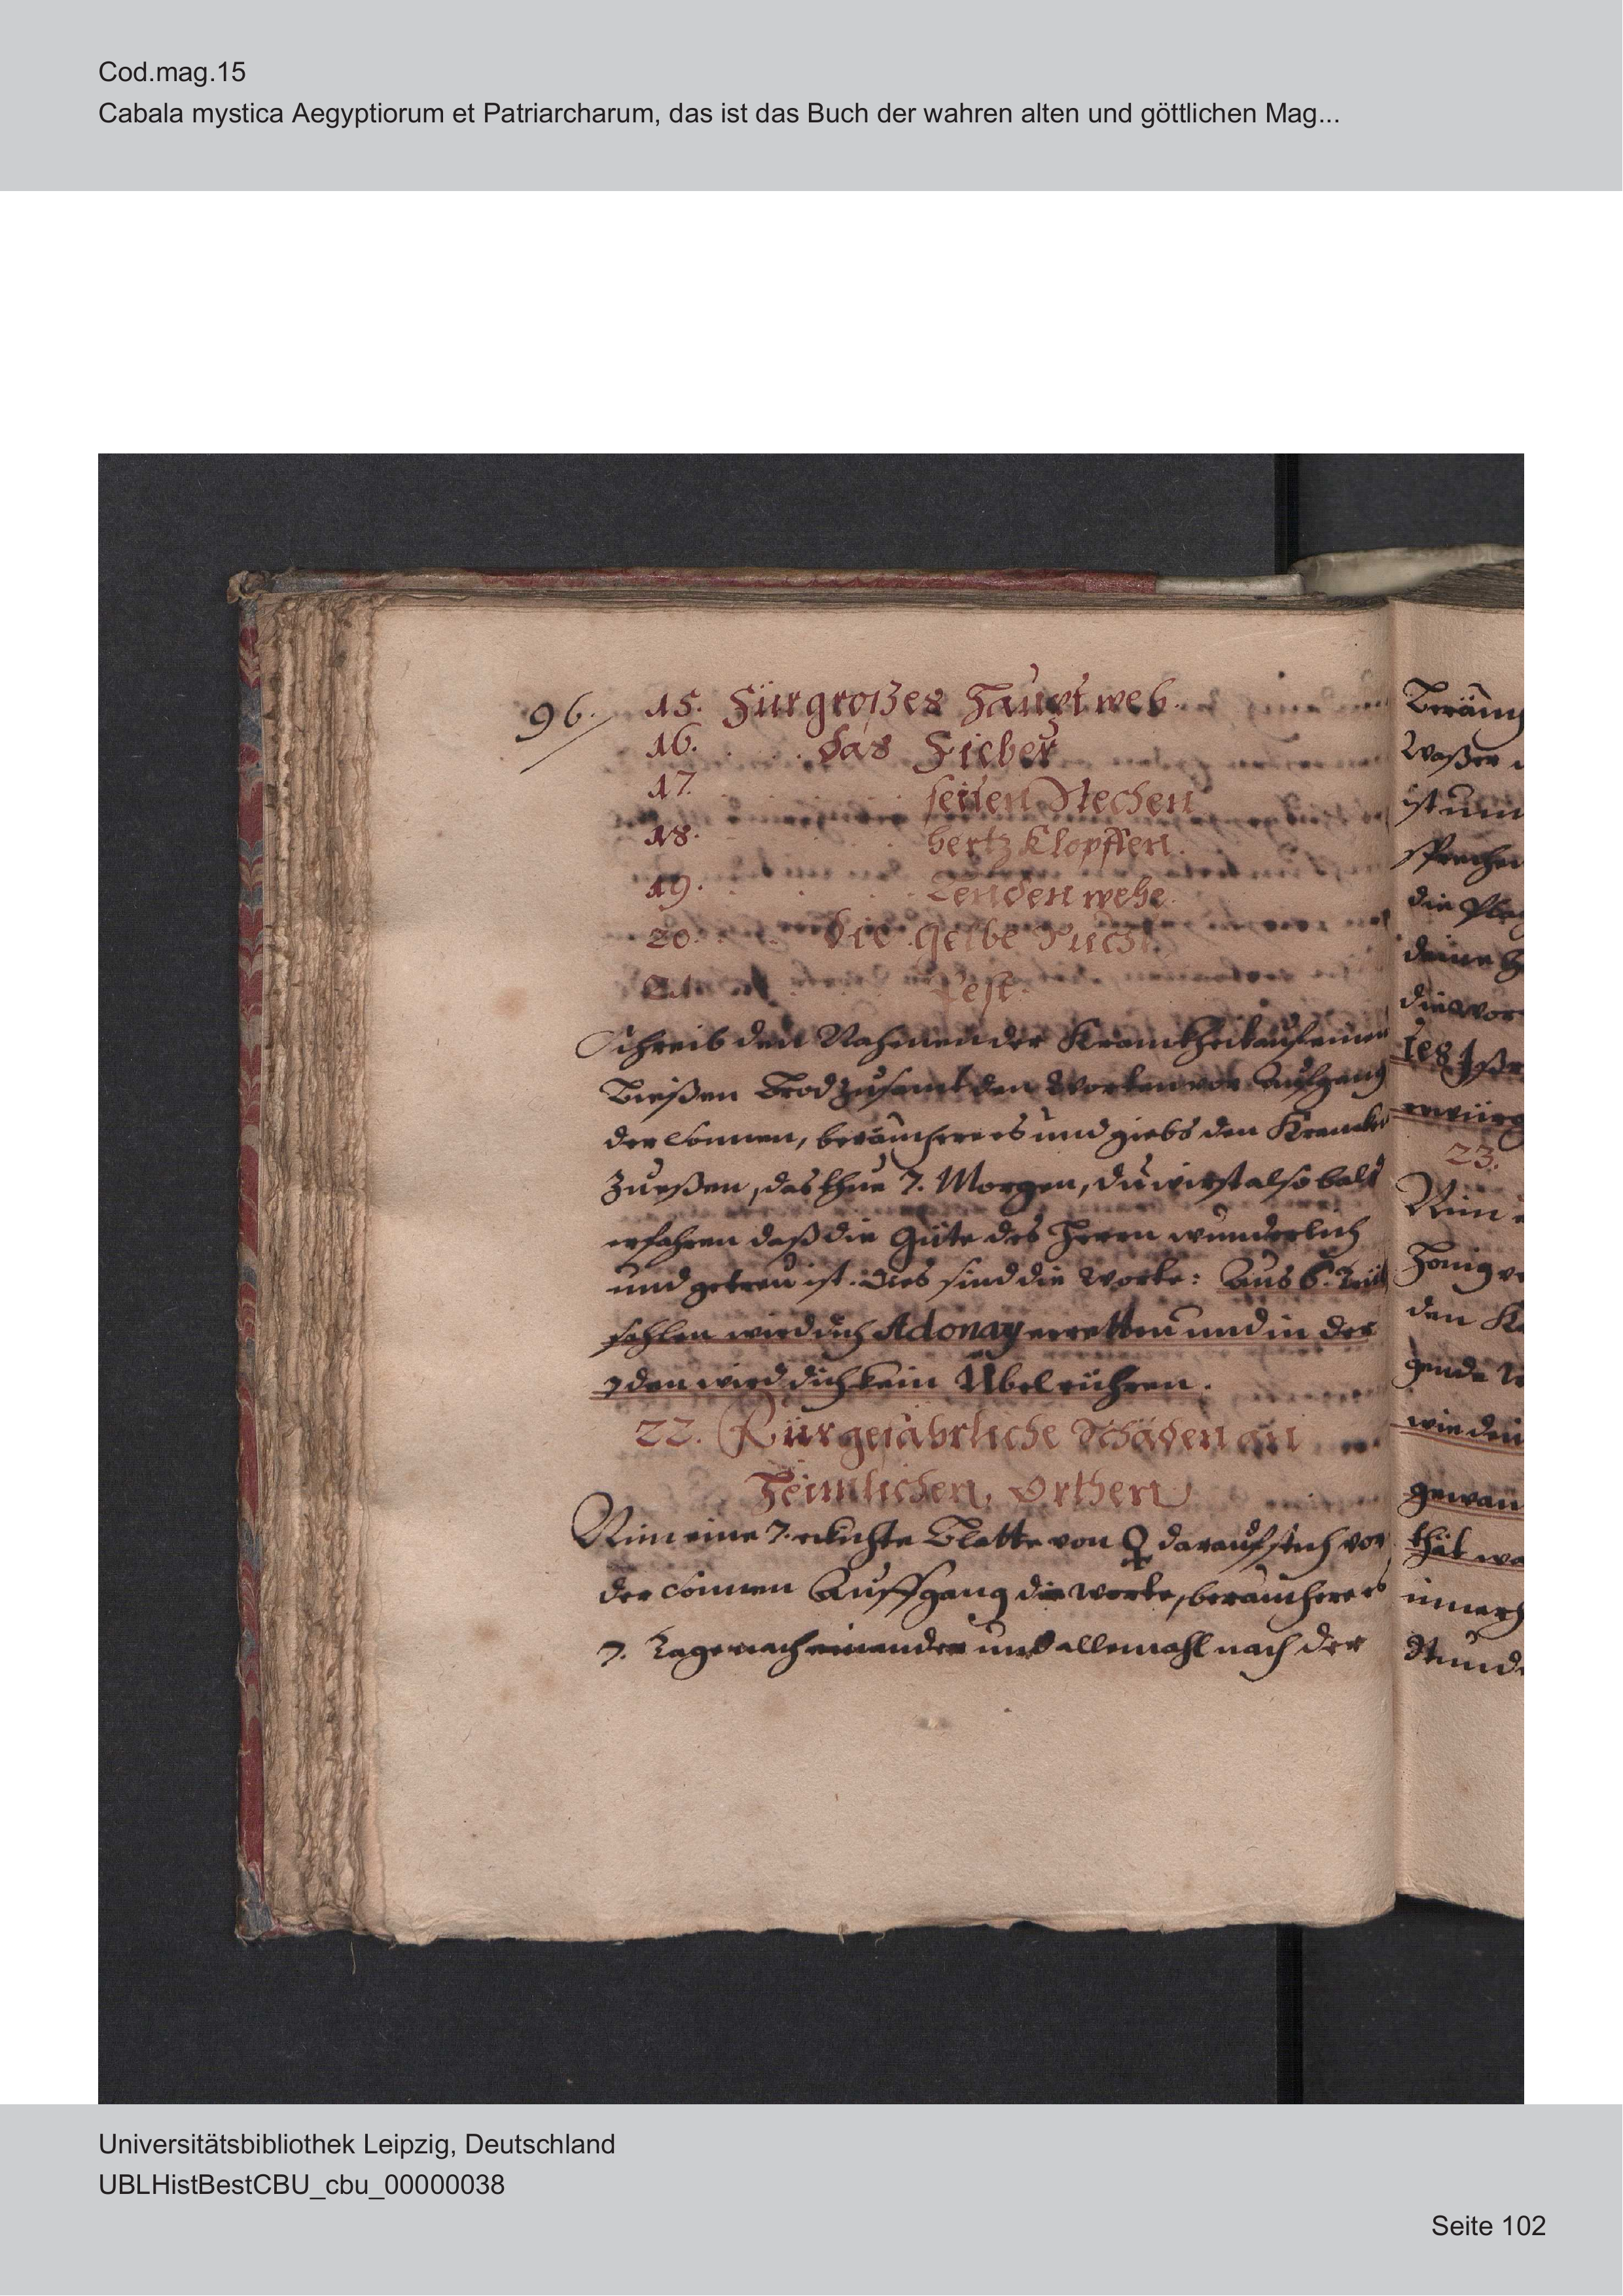 Cod.mag.15
Cabala mystica Aegyptiorum et Patriarcharum, das ist das Buch der wahren alten und göttlichen Mag...
96. 15. Für großes Hauptweh.
16. das Fieber
17. seiten Stechen
18. hertz Klopffen.
19. Lenden wehe.
20. die gelbe Sucht.
21. Pest.
Schreib den Nahmen der Kranckheit auf einen
Bießen Brod zusamt den Worten vor Aufgang
der Sonnen, beräuchere es und giebs den Krancken
zu eßen, das thue 7. Morgen, du wirst also bald
erfahren daß die Güte des Herrn wunderlich
und getreu ist. Dies sind die Worte: Aus 6. Trüb
sahlen wird dich Adonay erretten und in der
7den wird dich kein Übel rühren.
22. Für gefährliche Schäden an
Heimlichen Orthen
Nim eine 7. eckichte Blatte von ♀ darauf stich vor
der Sonnen Auffgang die Worte, beräuchere es
7. Tage nach einander und allemahl nach der
Waßer
ist um
sprechen
deine
23.
Nim
Honig
den
gende
wie dein
gewan
thät
innerh
Stunde
Universitätsbibliothek Leipzig, Deutschland
UBLHistBestCBU_cbu_00000038
Seite 102